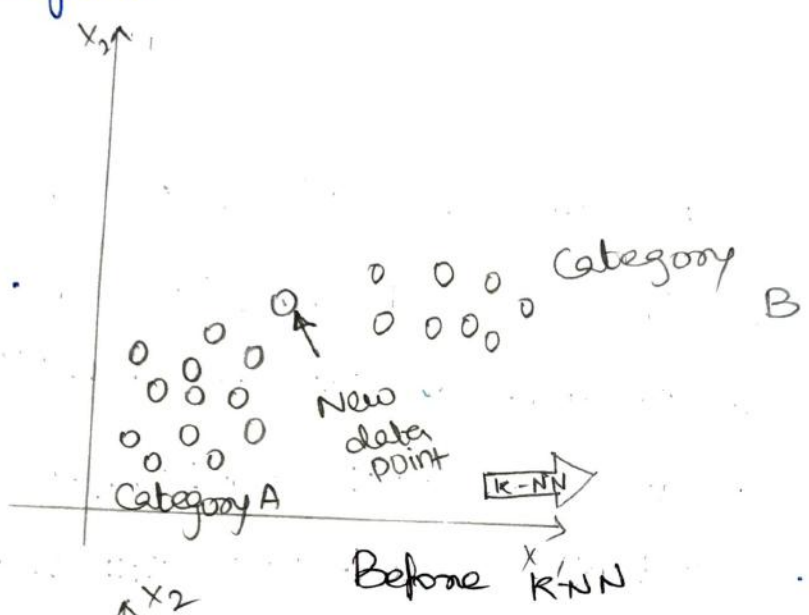 X2
Category
B
New
data
point
Category A
K-NN
X
Before K-NN
X2